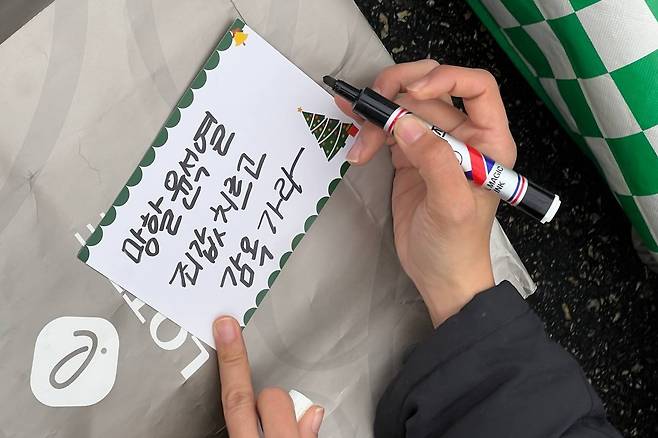 망할 윤석열
죄값 치르고
감옥 가라~
MAGIC
INK